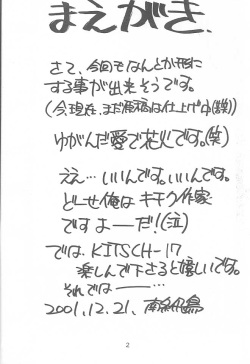 まえがき.
さて、今回もなんとか形に
する事が出来そうです。
(今、現在、まだ原稿は仕上げ中(爆))
ゆがんだ愛で花火です。(笑)
ええ…いいんです。いいんです。
どーせ俺はキチク作家
ですよーだ!(泣)
では、KITSCH-17
楽しんで下さると嬉しいです。
それでは――…
2001.12.21.
2